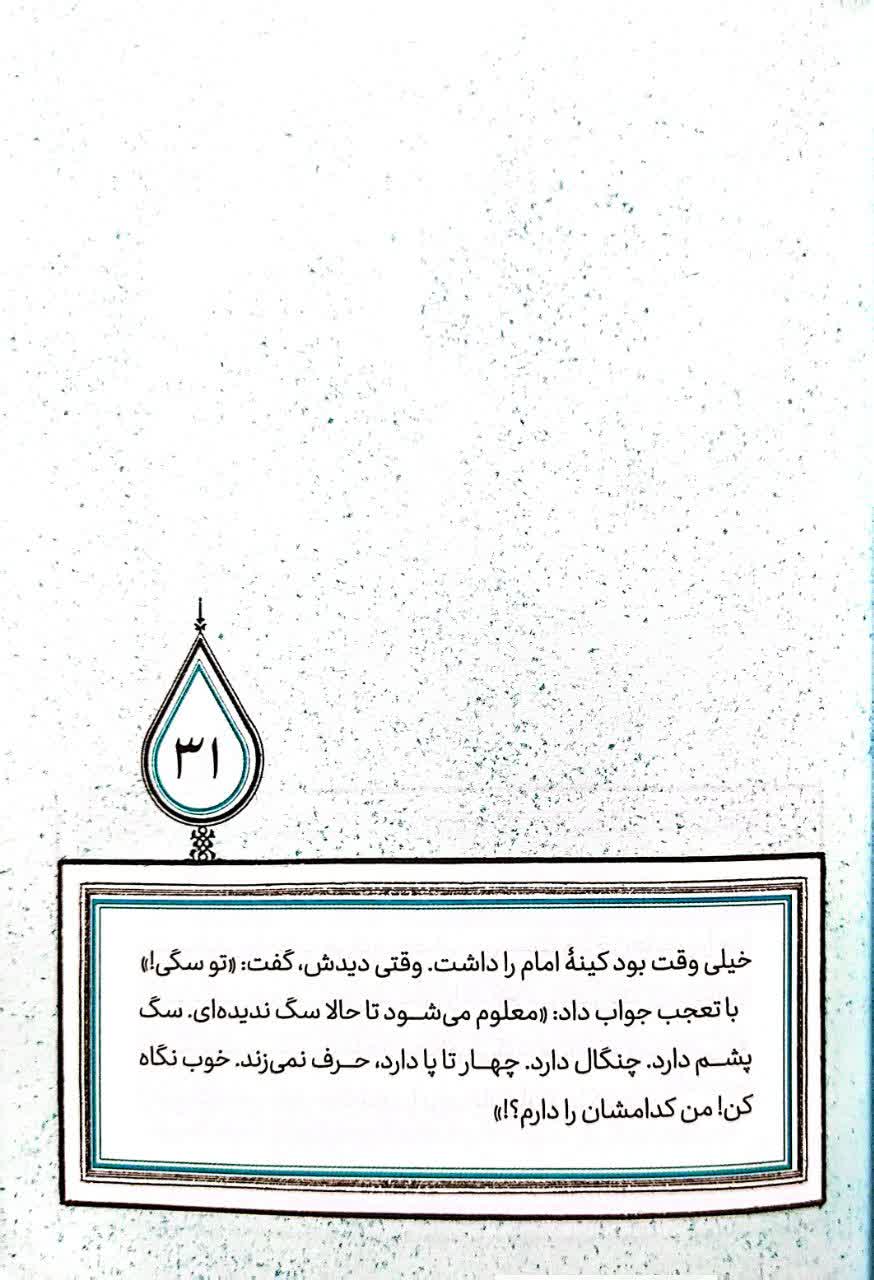 ۳۱
خیلی وقت بود کینهٔ امام را داشت. وقتی دیدش، گفت: «تو سگی!»
با تعجب جواب داد: «معلوم می‌شود تا حالا سگ ندیده‌ای. سگ
پشم دارد. چنگال دارد. چهار تا پا دارد، حرف نمی‌زند. خوب نگاه
کن! من کدامشان را دارم؟!»